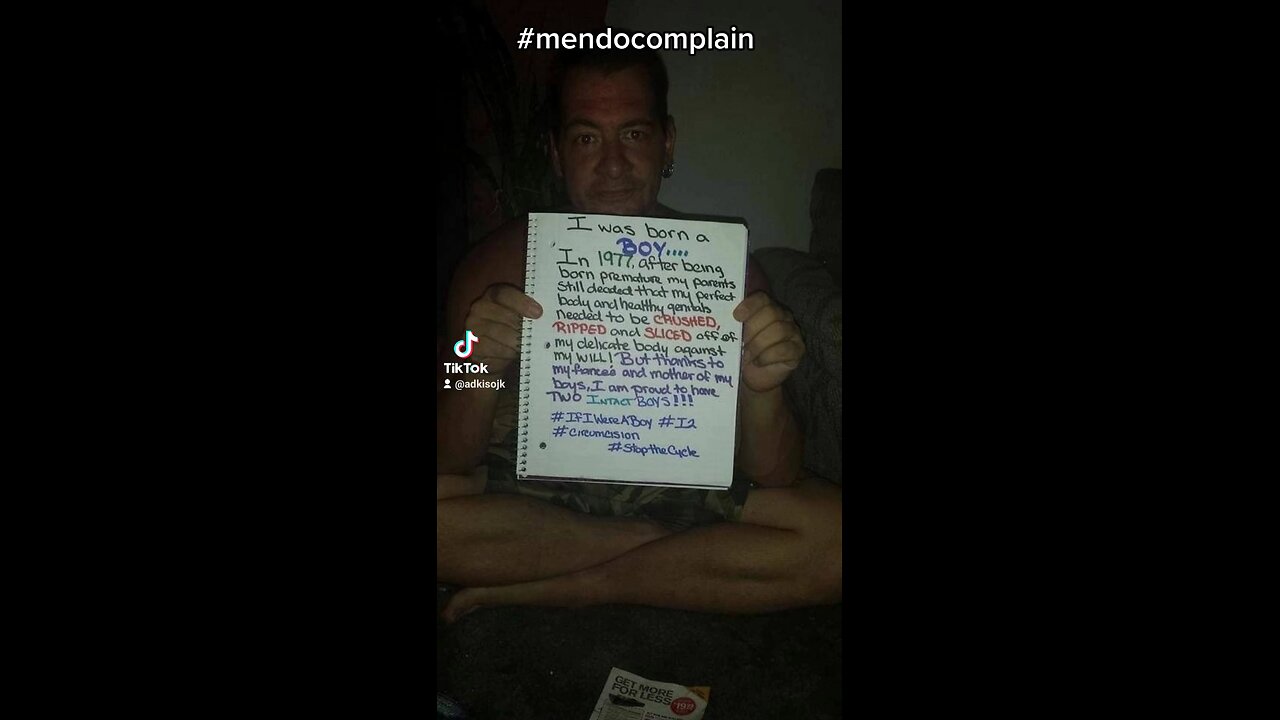 #mendocomplain
I was born a
BOY....
In 1977, after being
born premature my parents
still decided that my perfect
body and healthy genitals
needed to be CRUSHED,
RIPPED and SLICED off of
my delicate body against
my WILL! But thanks to
my fianceé and mother of my
boys, I am proud to have
TWO INTACT BOYS!!!
#IfIWereABoy #I2
#circumcision
#StoptheCycle
TikTok
@adkisojk
GET MORE
FOR LESS